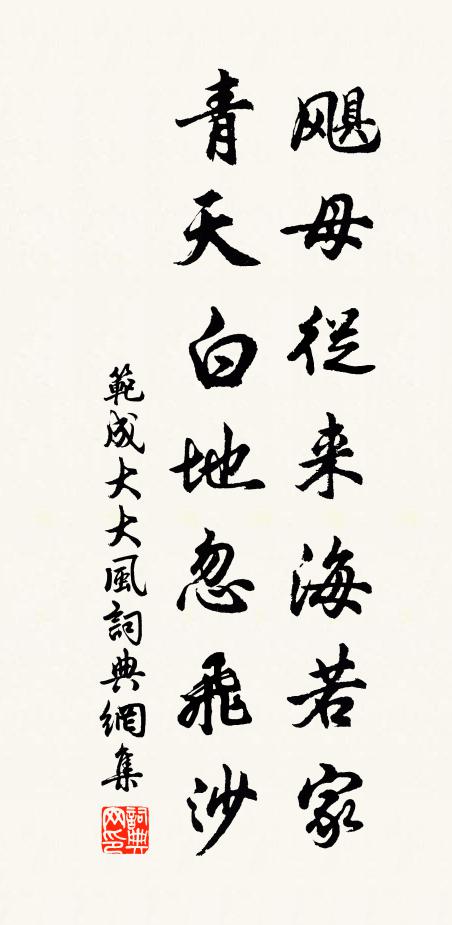 颶母從来海若家
青天白地忽飛沙
範成大大風詞典網集
詞典网印